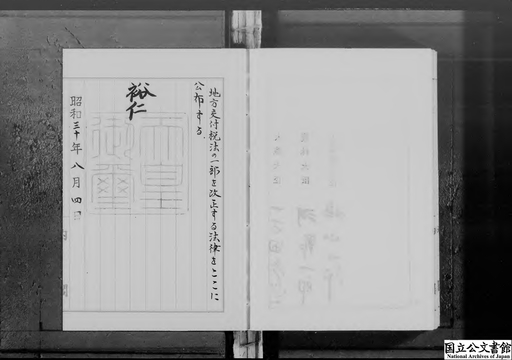 地方交付税法の一部を改正する法律をここに
公布する
裕仁
天皇
御璽
昭和三十年八月四日
国立公文書館
National Archives of Japan